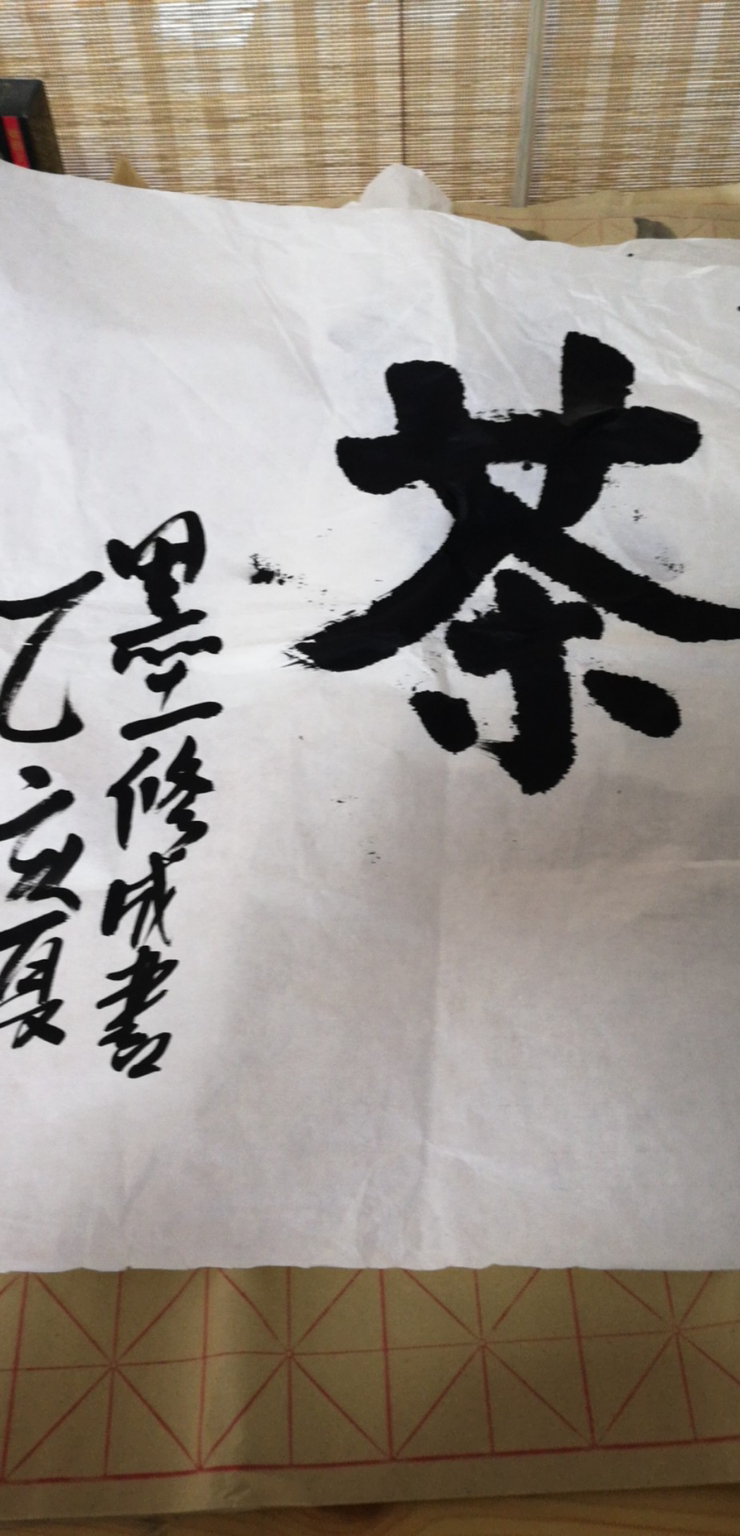 茶
墨修成書
乙亥夏